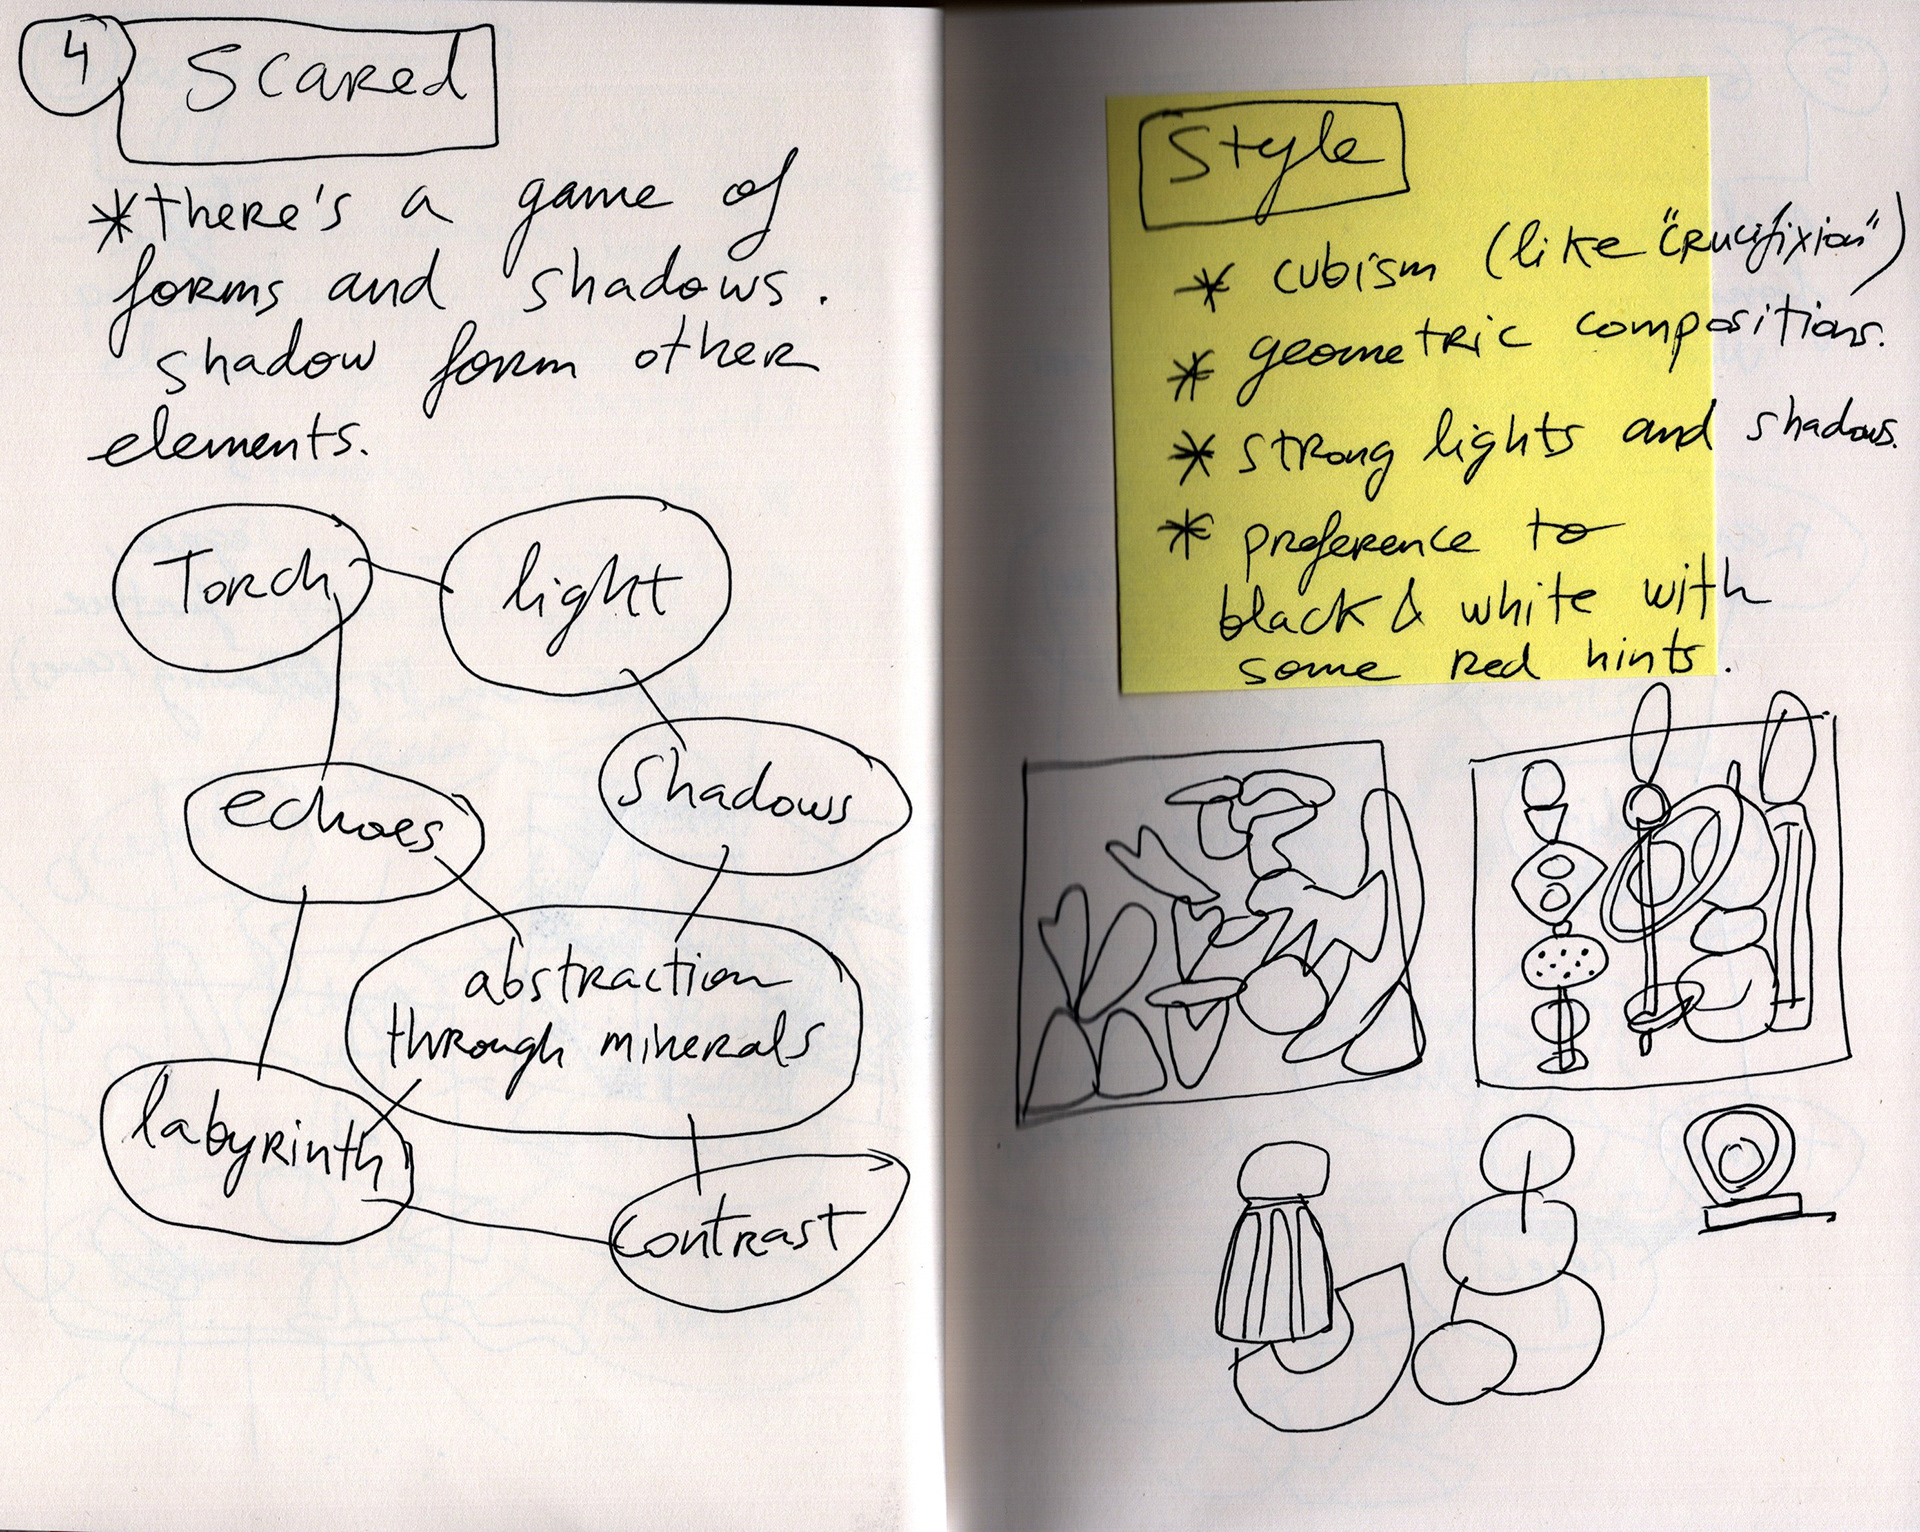 4
Scared
*there's a game of
forms and shadows.
shadow form other
elements.
Torch
light
echoes
shadows
abstraction
through minerals
labyrinth
contrast
Style
* cubism (like "crucifixion")
* geometric compositions.
* strong lights and shadows.
* preference to
black & white with
some red hints.